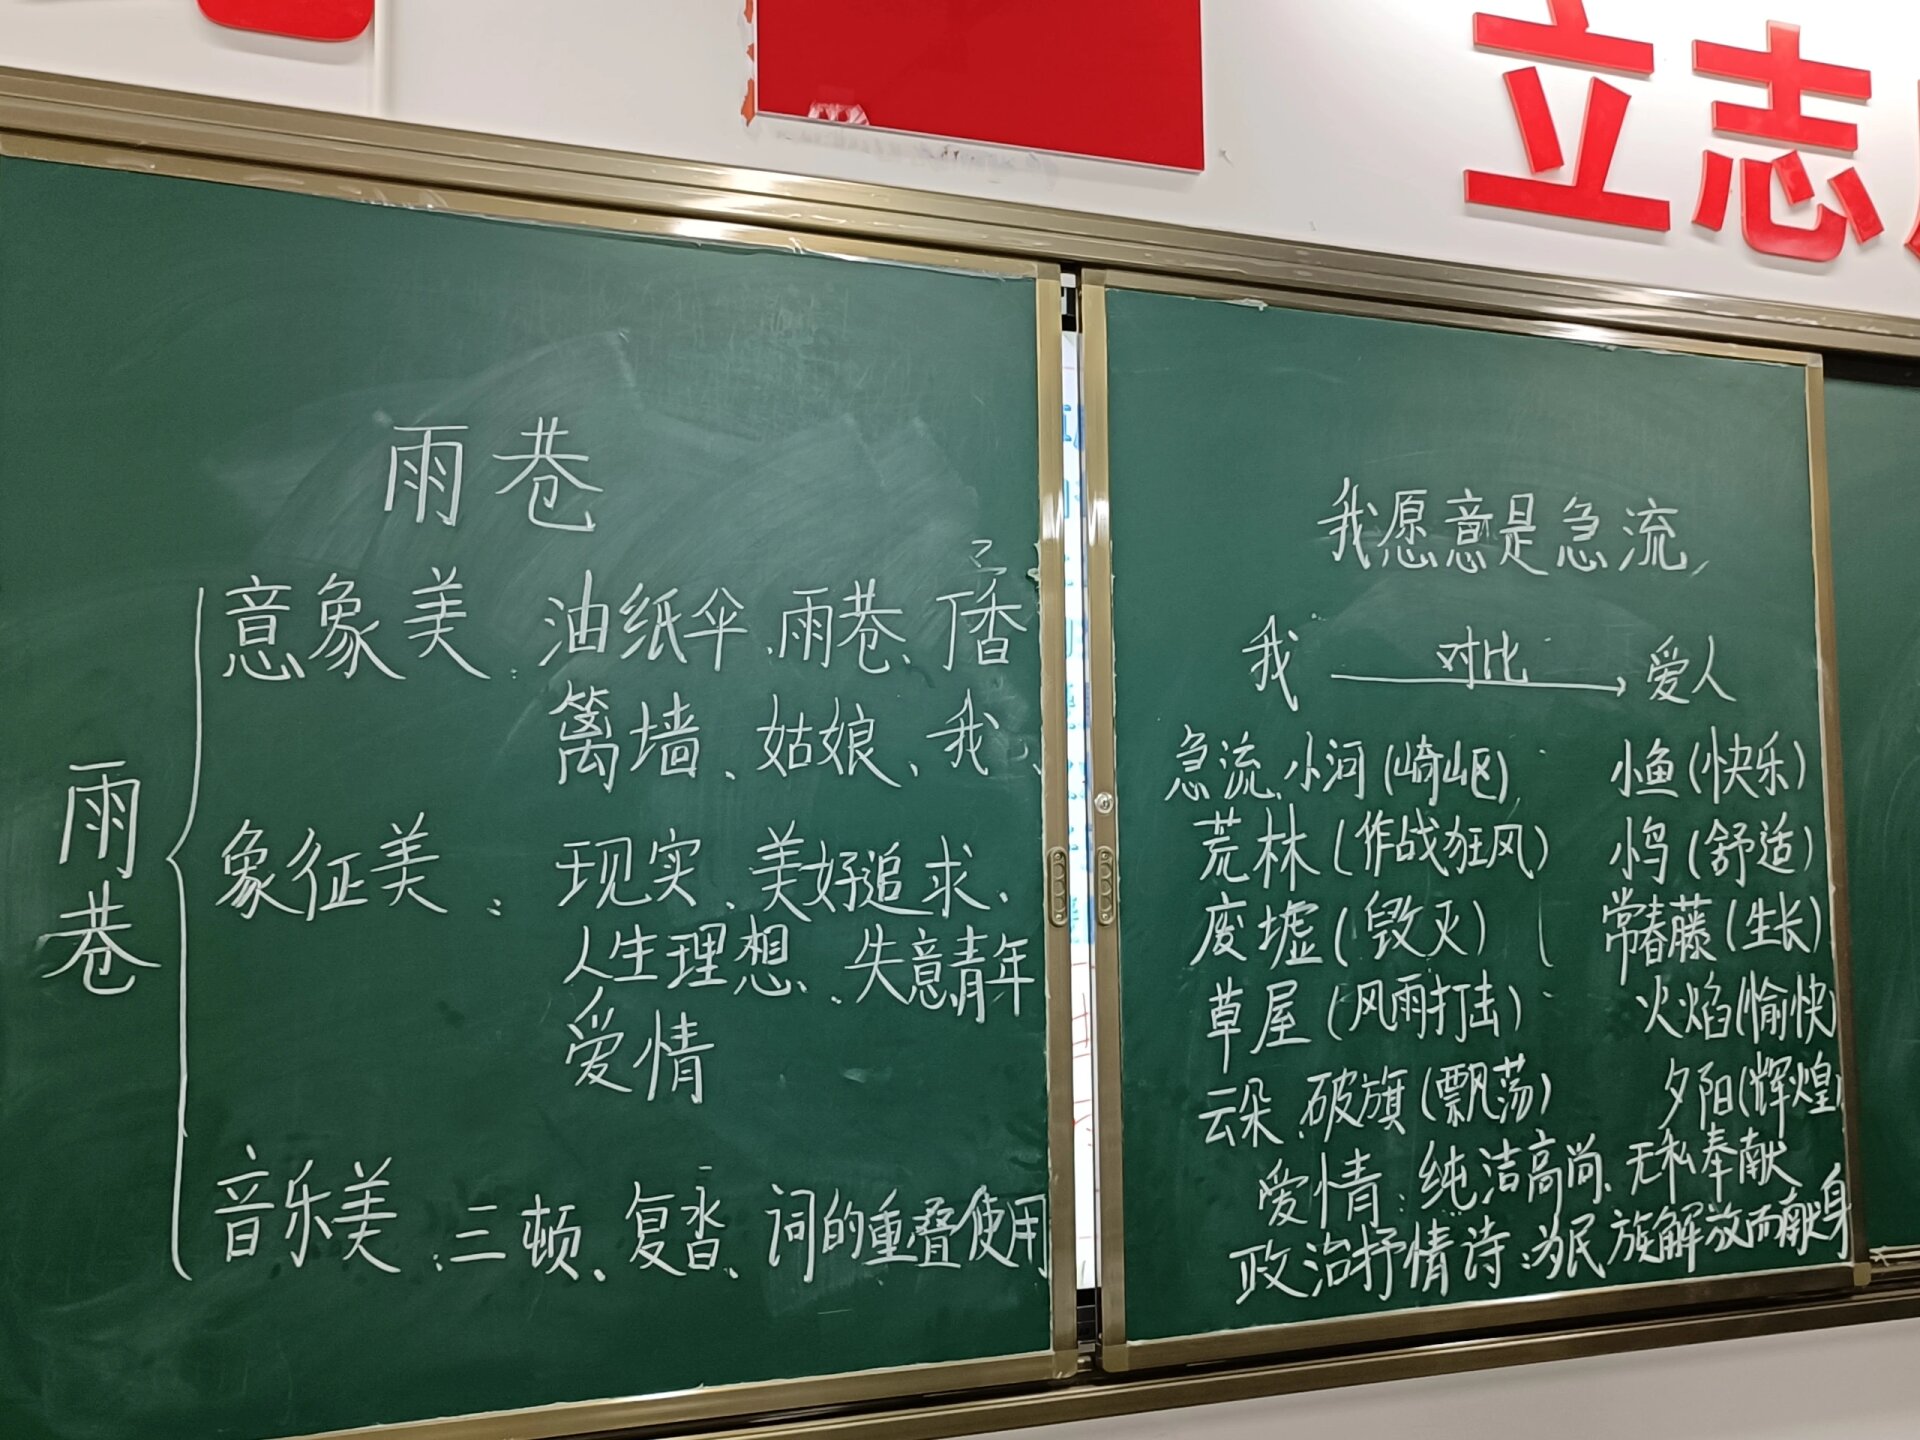 立志
雨巷
雨巷
意象美：油纸伞、雨巷、丁香
篱墙、姑娘、我、
象征美：现实、美好追求、
人生理想、失意青年
爱情
音乐美：三顿、复沓、词的重叠使用
我愿意是急流
我 对比 爱人
急流、小河(崎岖) 小鱼(快乐)
荒林(作战狂风) 小鸟(舒适)
废墟(毁灭) 常春藤(生长)
草屋(风雨打击) 火焰(愉快)
云朵、破旗(飘荡) 夕阳(辉煌)
爱情：纯洁高尚、无私奉献
政治抒情诗：为民族解放而献身